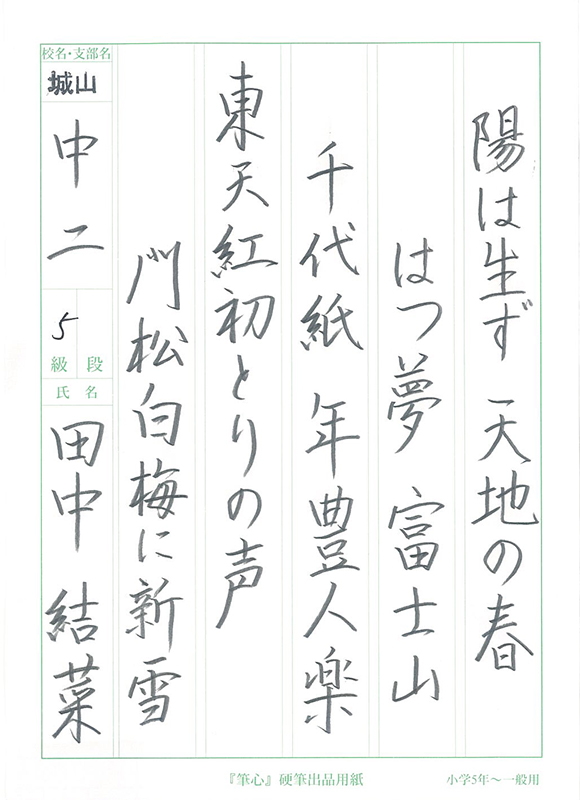 陽は生ず 天地の春
はつ夢 富士山
千代紙 年豊人楽
東天紅初とりの声
門松白梅に新雪
校名・支部名
城山
中二
5
級 段
氏 名
田中 結菜
『筆心』硬筆出品用紙
小学5年〜一般用